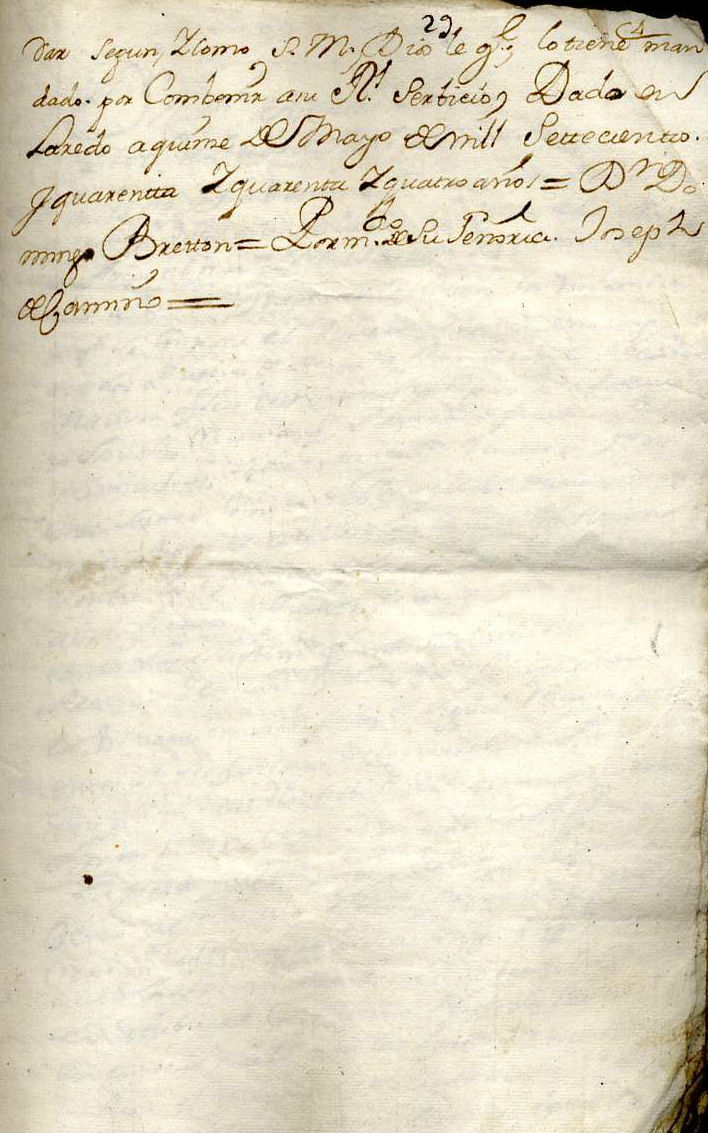 29
dar segun, Y como S. M. Dios le g.e lo tiene man
dado. por Combenir asu R.l Serbicio, Dado en
Laredo a quinse De Mayo de mill Settecientos.
Y quarentta Y quarenta Y quatro años = D.n Do
mingo Bretton = Por m.do de Su Señoria. Joseph
de Camino =